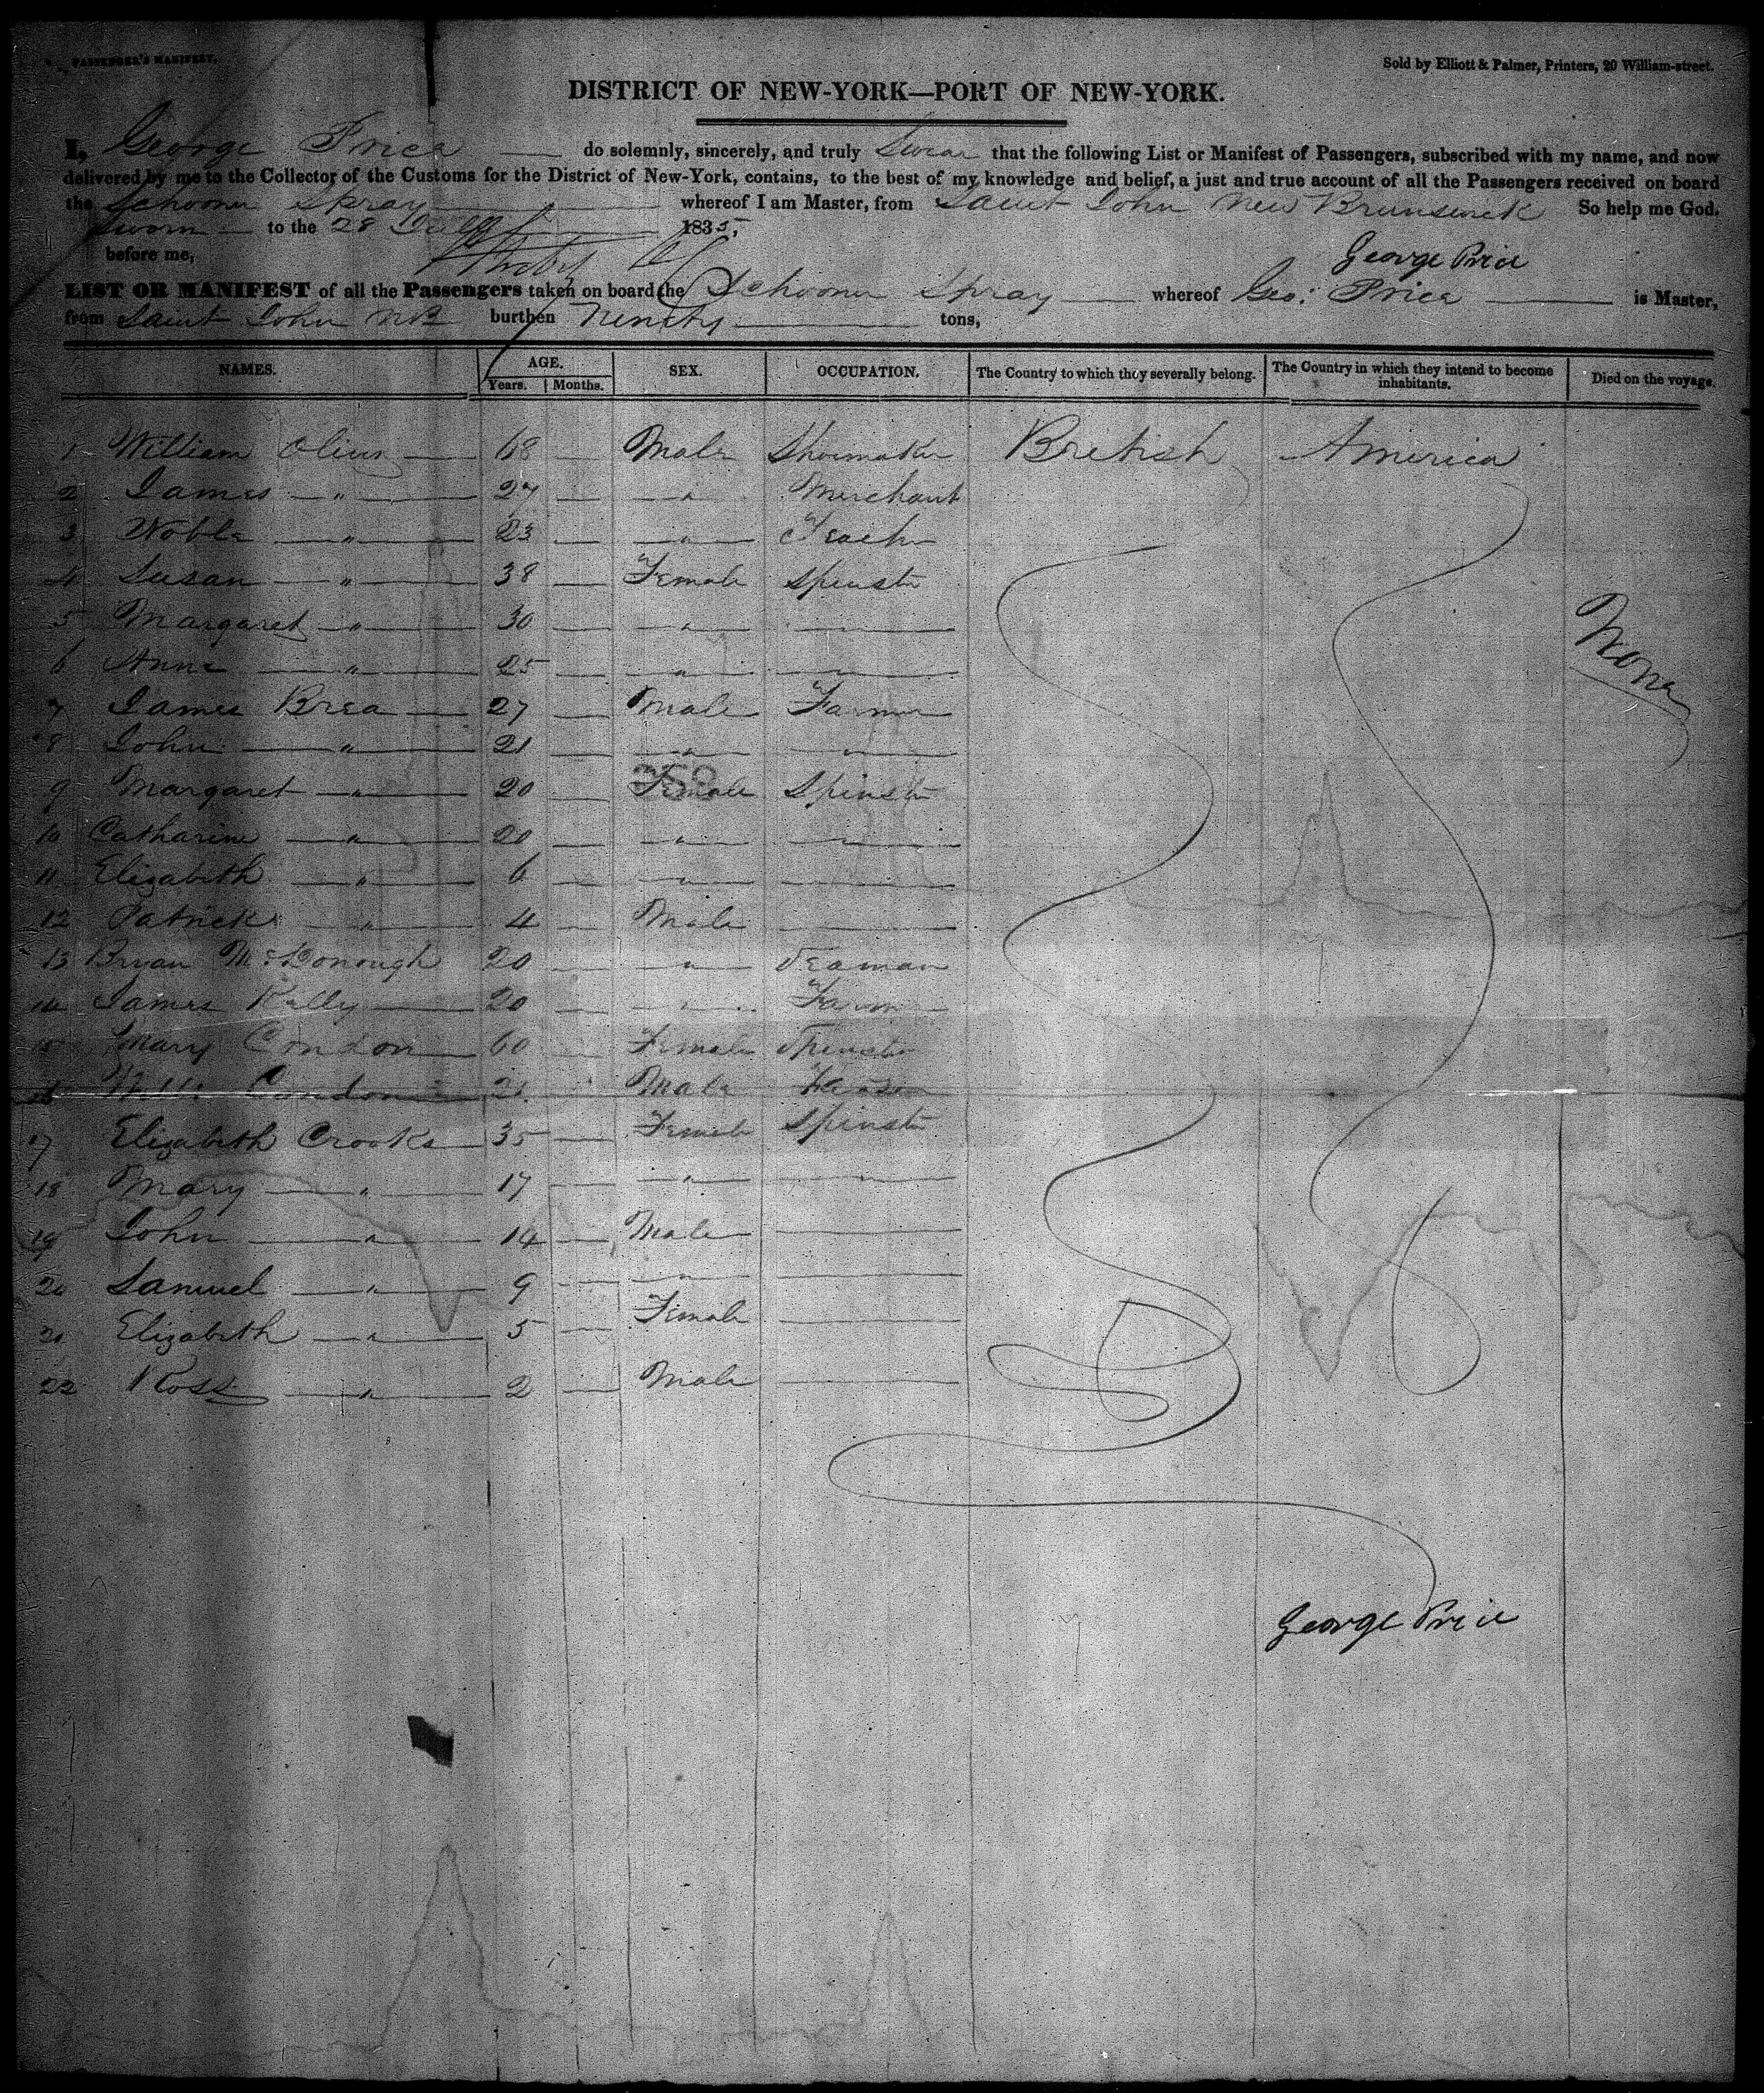 PASSENGER'S MANIFEST.
Sold by Elliott & Palmer, Printers, 20 William-street.
DISTRICT OF NEW-YORK—PORT OF NEW-YORK.
I, George Price do solemnly, sincerely, and truly Swear that the following List or Manifest of Passengers, subscribed with my name, and now
delivered by me to the Collector of the Customs for the District of New-York, contains, to the best of my knowledge and belief, a just and true account of all the Passengers received on board
the Schooner Spray whereof I am Master, from Saint John New Brunswick So help me God.
Sworn to the 28 1835,
before me, George Price
LIST OR MANIFEST of all the Passengers taken on board the Schooner Spray whereof Geo: Price is Master,
from Saint John NB burthen Ninety tons,
NAMES. AGE. SEX. OCCUPATION. The Country to which they severally belong. The Country in which they intend to become inhabitants. Died on the voyage.
Years. Months.
1 William Oliver 68 Male Shoemaker British America
2 James " 27 " Merchant
3 Noble " 23 " Teacher
4 Susan " 38 Female Spinstr
5 Margaret " 30 " None
6 Anne " 25 " "
7 James Brea 27 Male Farmer
8 John " 21 " "
9 Margaret " 20 Female Spinstr
10 Catharine " 20 "
11 Elizabeth " 6 "
12 Patrick " 4 Male
13 Bryan McDonough 20 " Seaman
14 James Kelly 20 " Farmr
15 Mary Condon 60 Female Spinstr
16 Condon Male
17 Elizabeth Crooks 35 Female Spinstr
18 Mary " 17 "
19 John " 14 Male
20 Samuel " 9 "
21 Elizabeth " 5 Female
22 Ross " 2 Male
George Price